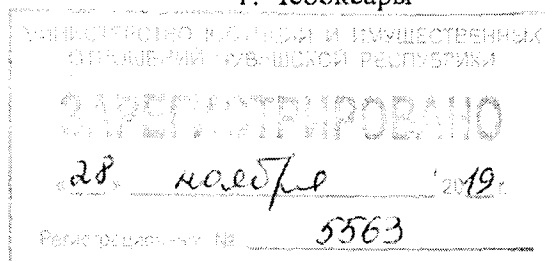 г. Чебоксары
МИНИСТЕРСТВО ЮСТИЦИИ И ИМУЩЕСТВЕННЫХ
ОТНОШЕНИЙ ЧУВАШСКОЙ РЕСПУБЛИКИ
ЗАРЕГИСТРИРОВАНО
«28» ноября 2019 г.
Регистрационный № 5563